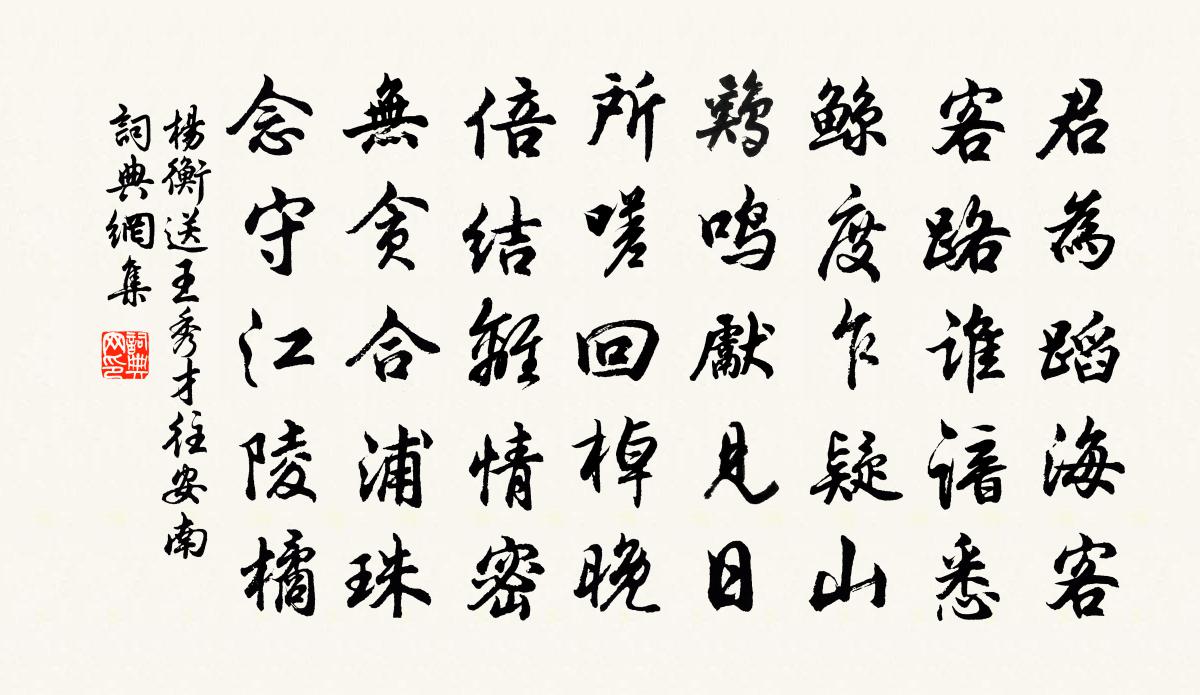 君為蹈海客
客路谁谙悉
鲸度乍疑山
鶏鸣獻见日
所嗟回棹晚
倍结離情密
無贪合浦珠
念守江陵橘
楊衡送王秀才往安南
詞典網集